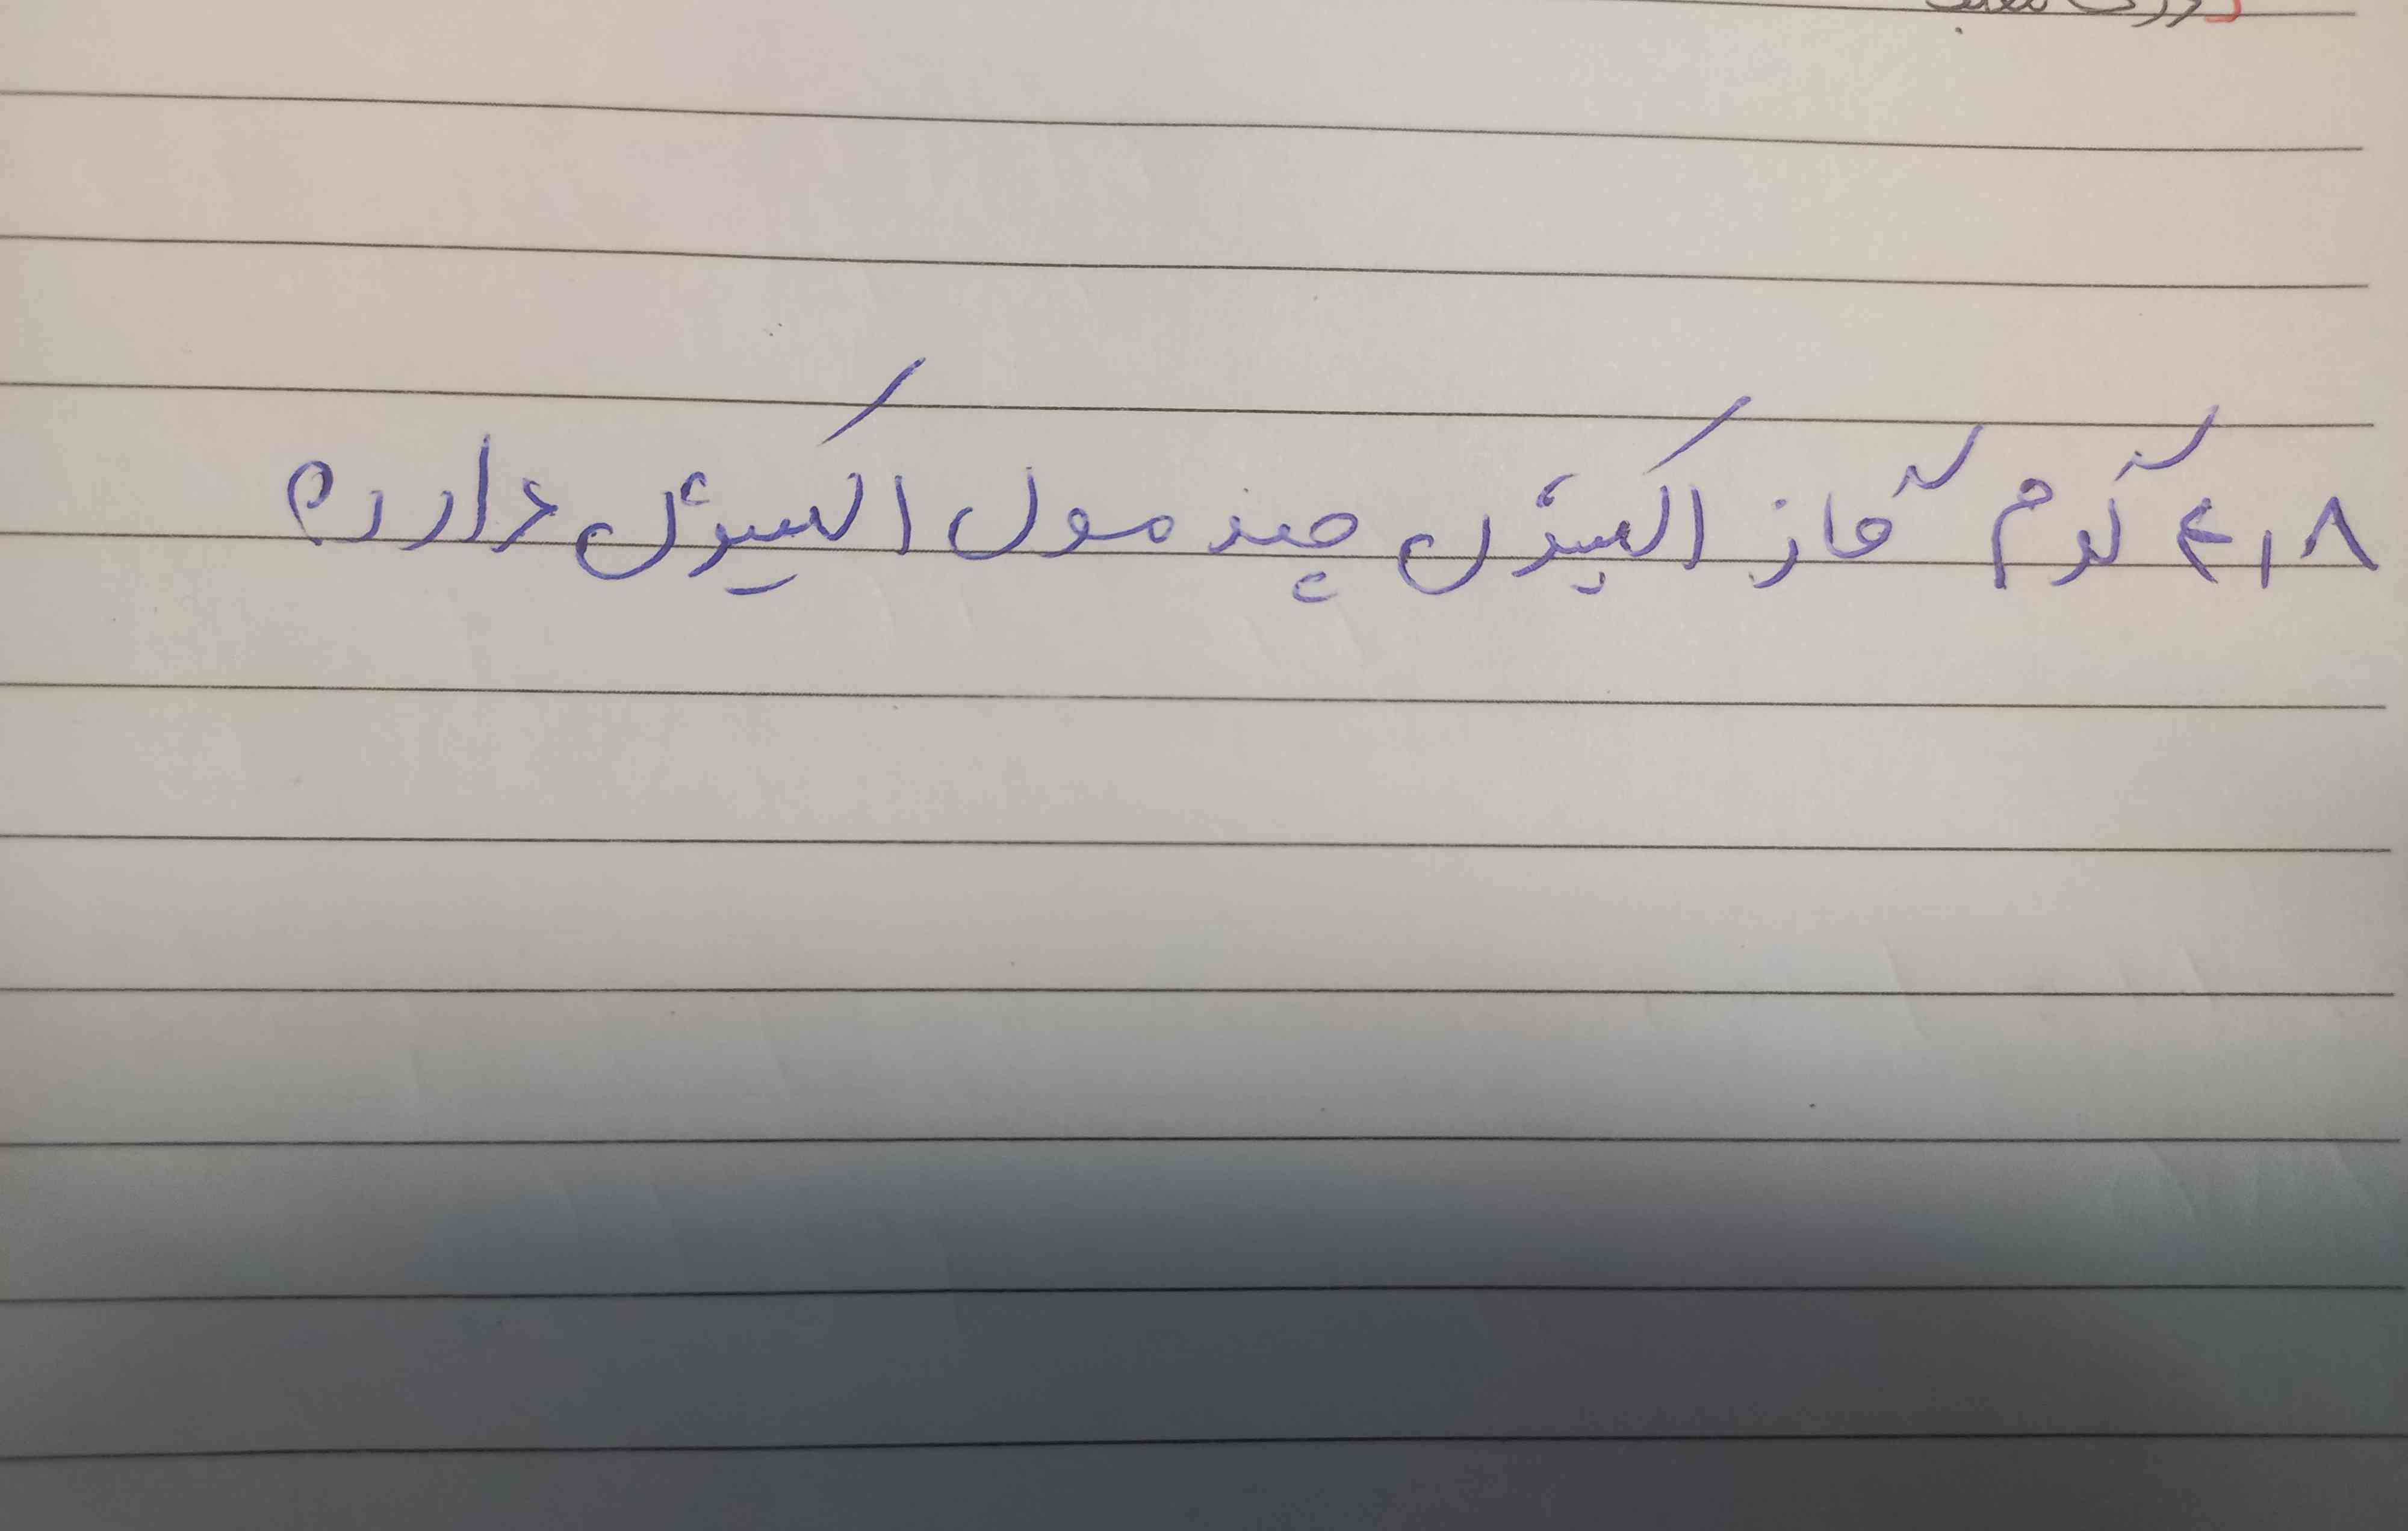 ۴٫۸ گرم گاز اکسیژن چند مول اکسیژن دارد؟